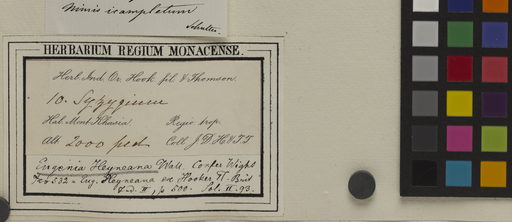 Nimis incompletum
Schultes.
HERBARIUM REGIUM MONACENSE.
Herb. Ind. Or. Hook. fil. & Thomson.
10. Syzygium
Hab. Mont. Khasia. Regio trop.
Alt. 2000 ped. Coll. J. D. H. & T. T.
Eugenia Heyneana Wall. Confer Wight
= Eug. Heyneana ex Hooker Fl. Brit
Ind. II, p. 500. II. 93.